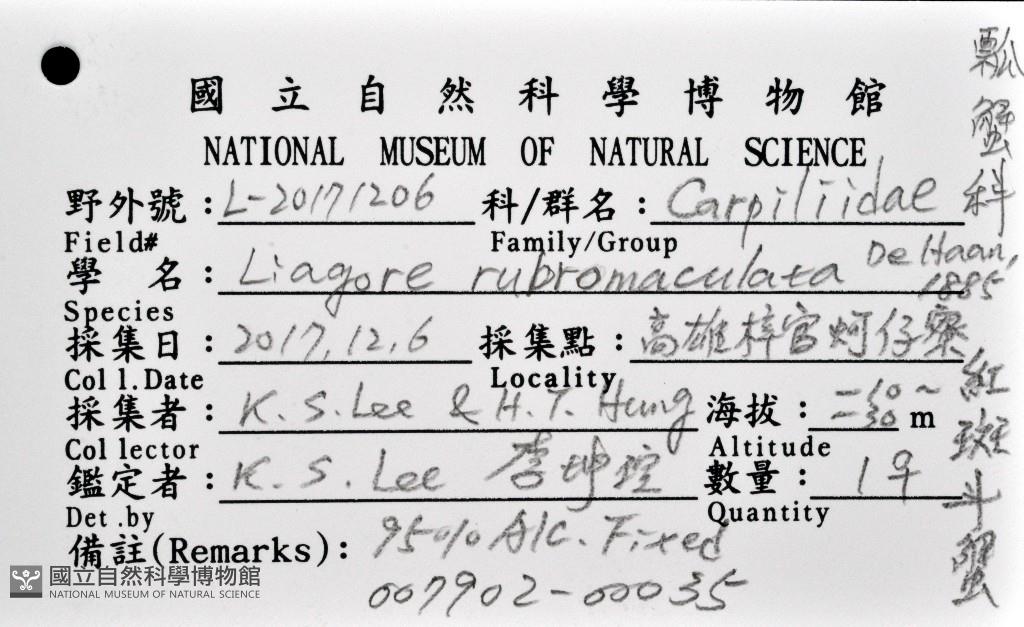 國立自然科學博物館
NATIONAL MUSEUM OF NATURAL SCIENCE
野外號：L-20171206 科/群名：Carpiliidae
Field# Family/Group
學名：Liagore rubromaculata De Haan, 1885
Species
採集日：2017.12.6 採集點：高雄梓官蚵仔寮
Coll.Date Locality
採集者：K. S. Lee & H. T. Hung 海拔： m
Collector Altitude
鑑定者：K. S. Lee 李坤瑄 數量：1♀
Det.by Quantity
備註(Remarks)：95% Alc. Fixed
007902-00035
瓢蟹科
紅斑斗蟹
國立自然科學博物館
NATIONAL MUSEUM OF NATURAL SCIENCE